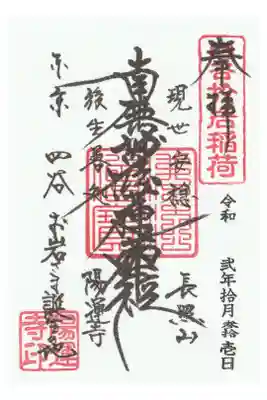 奉拝
於岩稲荷
令和 弐年拾月壱日
長照山
現世安穏
南無妙法蓮華経
後生善処
陽運寺
東京 四谷 お岩さま誕生地
陽運寺印